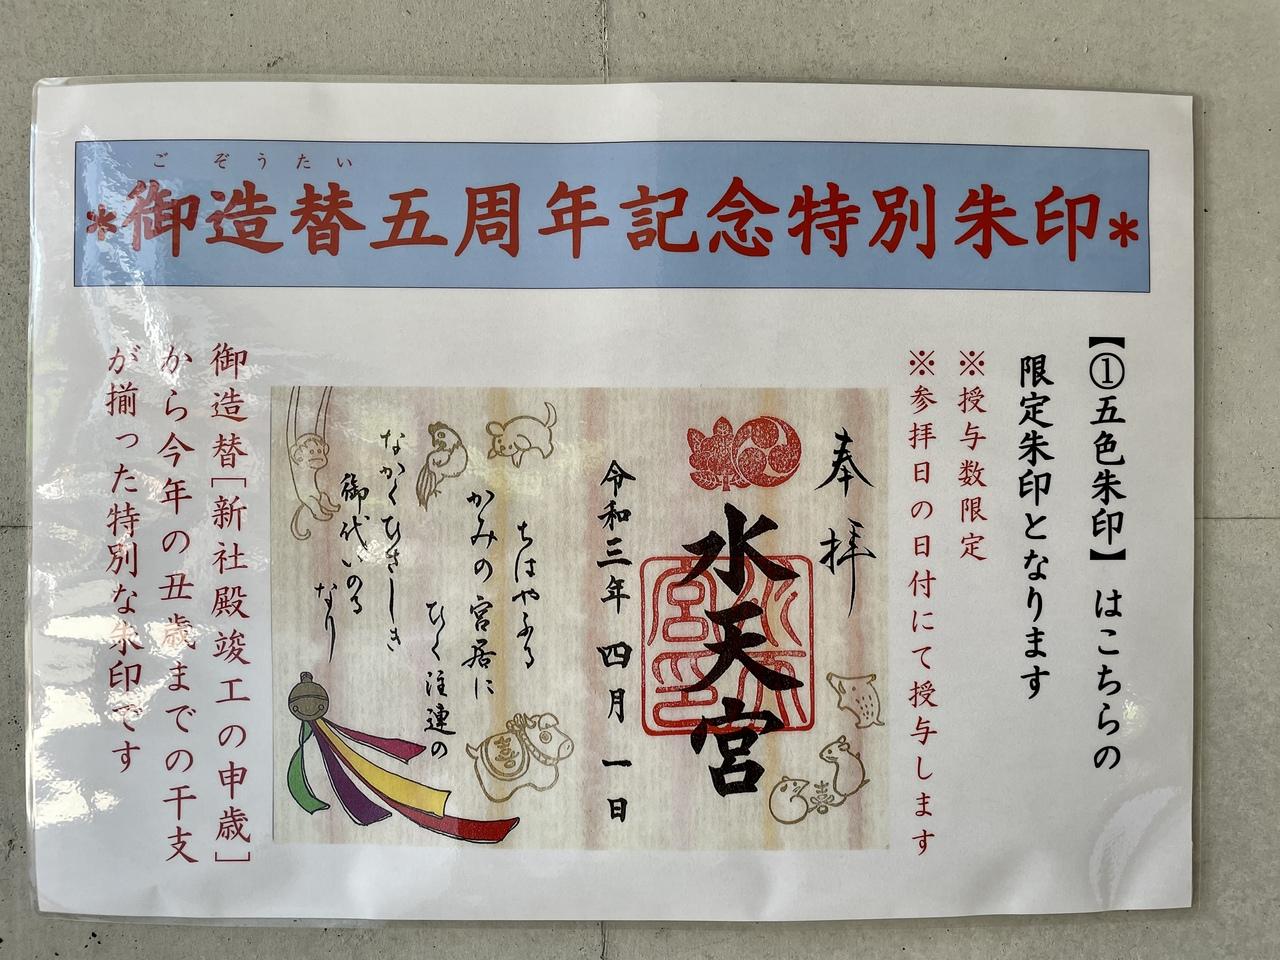 ごぞうたい
*御造替五周年記念特別朱印*
【①五色朱印】はこちらの
限定朱印となります
※授与数限定
※参拝日の日付にて授与します
奉拝
水天宮
令和三年 四月 一日
ちはやふる
かみの宮居に
ひく注連の
なかくひさしき
御代いのる
なり
喜
喜
御造替[新社殿竣工の申歳]
から今年の丑歳までの干支
が揃った特別な朱印です